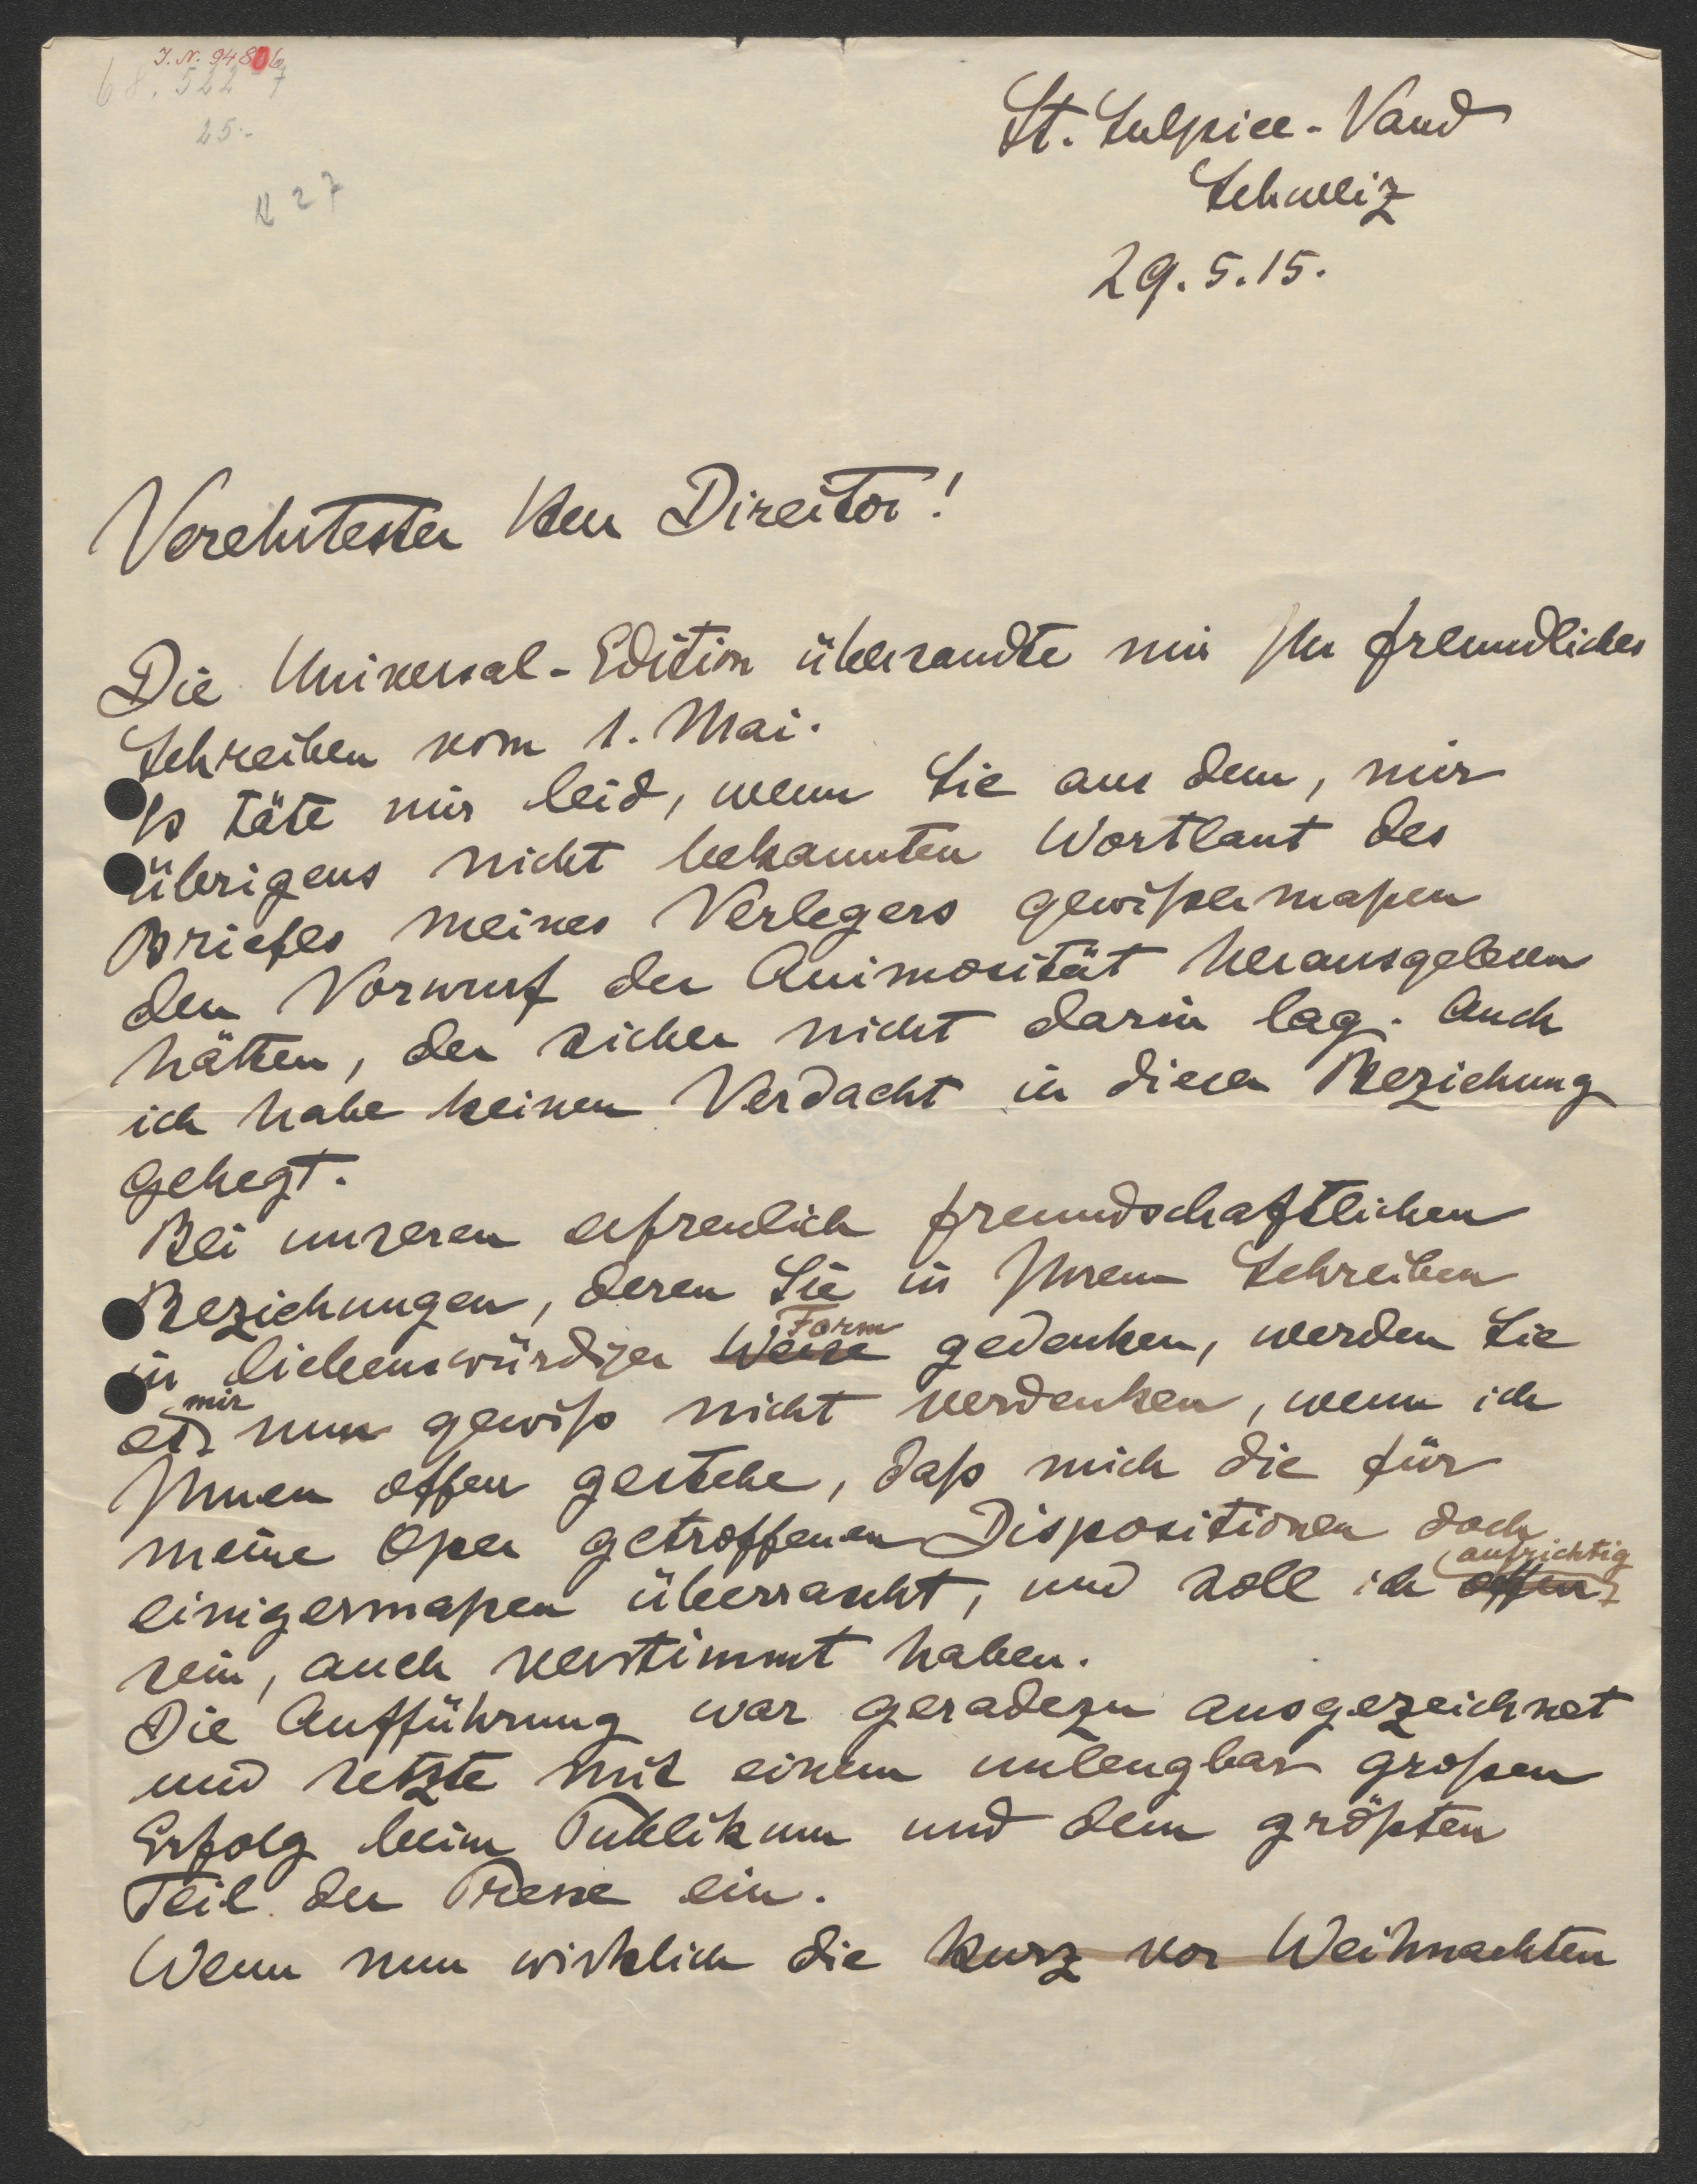 J. N. 94806
68.522 7
25.-
27
St. Sulpice - Vaud
Schweiz
29. 5. 15.
Verehrtester Herr Direktor!
Die Universal-Edition übersandte mir Ihr freundliches
Schreiben vom 1. Mai.
Es täte mir leid, wenn Sie aus dem, mir
übrigens nicht bekannten Wortlaut des
Briefes meines Verlegers gewißermaßen
den Vorwurf der Animosität herausgelesen
hätten, der sicher nicht darin lag. Auch
ich habe keinen Verdacht in dieser Beziehung
gehegt.
Bei unseren erfreulich freundschaftlichen
Beziehungen, deren Sie in Ihrem Schreiben
in liebenswürdiger Weise Form gedenken, werden Sie
es mir nun gewiß nicht verdenken, wenn ich
Ihnen offen gestehe, daß mich die für
meine Oper getroffenen Dispositionen doch
einigermaßen überrascht, und soll ich offen aufrichtig
sein, auch verstimmt haben.
Die Aufführung war geradezu ausgezeichnet
und setzte mit einem unleugbar großen
Erfolg beim Publikum und dem größten
Teil der Presse ein.
Wenn nun wirklich die kurz vor Weihnachten